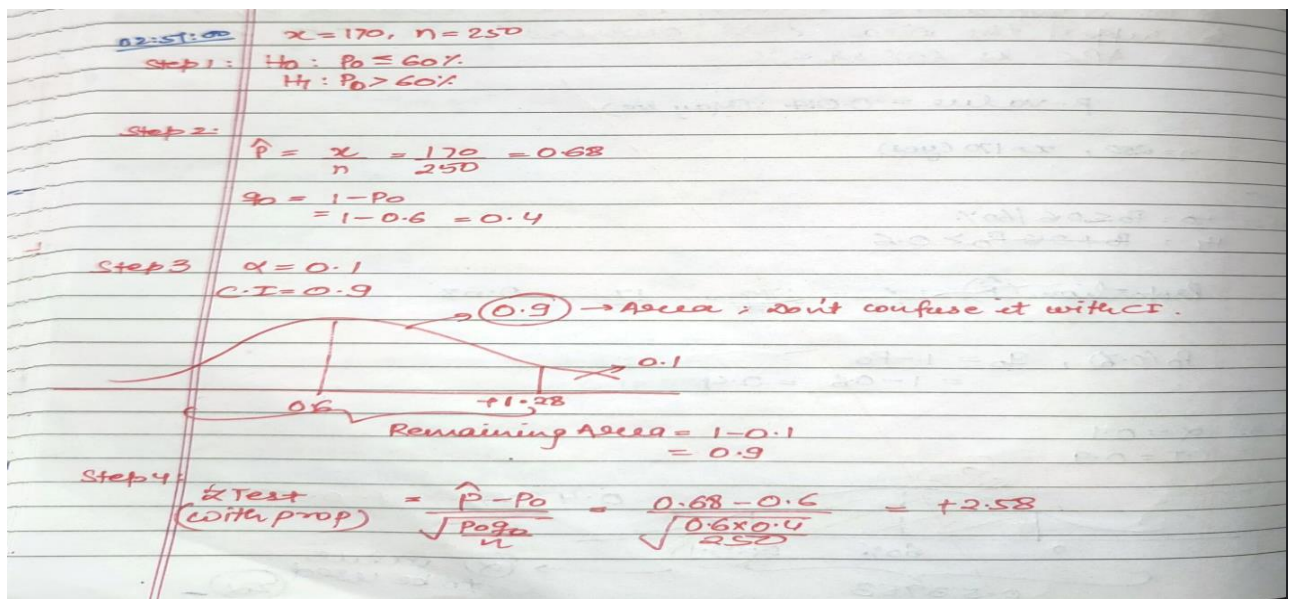 02:57:00 x = 170, n = 250
Step 1 : H0 : P0 ≤ 60%
H1 : P0 > 60%
Step 2:
P̂ = x/n = 170/250 = 0.68
q0 = 1 - P0
= 1 - 0.6 = 0.4
Step 3 α = 0.1
C.I = 0.9
0.9 → Area ; Don't confuse it with CI.
0.1
0.6 +1.28
Remaining Area = 1 - 0.1
= 0.9
Step 4:
Z Test (with prop) = (P̂ - P0)/√(P0q0/n) = (0.68 - 0.6)/√(0.6 × 0.4/250) = +2.58